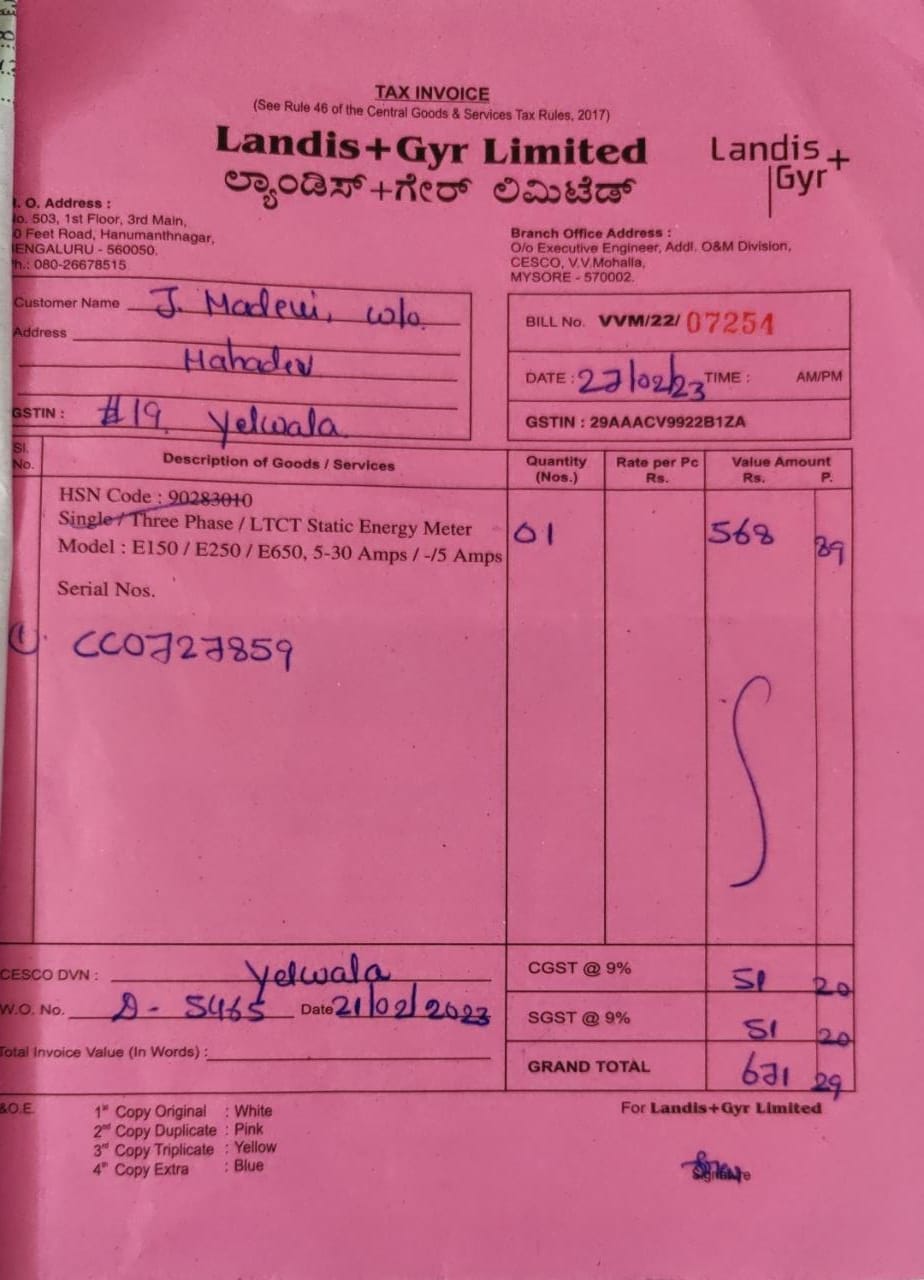 TAX INVOICE
(See Rule 46 of the Central Goods & Services Tax Rules, 2017)
Landis+Gyr Limited
ಲ್ಯಾಂಡಿಸ್+ಗೇರ್ ಲಿಮಿಟೆಡ್
Landis+
Gyr
. O. Address :
o. 503, 1st Floor, 3rd Main,
0 Feet Road, Hanumanthnagar,
ENGALURU - 560050.
h.: 080-26678515
Branch Office Address :
O/o Executive Engineer, Addl. O&M Division,
CESCO, V.V.Mohalla,
MYSORE - 570002.
Customer Name J. Madevi, w/o.
Address
Mahadev
GSTIN : #19. Yelwala
BILL No. VVM/22/ 07254
DATE : 27/02/23 TIME : AM/PM
GSTIN : 29AAACV9922B1ZA
Sl. No. Description of Goods / Services Quantity (Nos.) Rate per Pc Rs. Value Amount Rs. P.
HSN Code : 90283010
Single / Three Phase / LTCT Static Energy Meter 01 568 89
Model : E150 / E250 / E650, 5-30 Amps / -/5 Amps
Serial Nos.
1. CC0727859
CESCO DVN : Yelwala
W.O. No. D - 5465 Date 21/02/2023
Total Invoice Value (In Words) :
CGST @ 9% 51 20
SGST @ 9% 51 20
GRAND TOTAL 671 29
&O.E.
1st Copy Original : White
2nd Copy Duplicate : Pink
3rd Copy Triplicate : Yellow
4th Copy Extra : Blue
For Landis+Gyr Limited
Signature